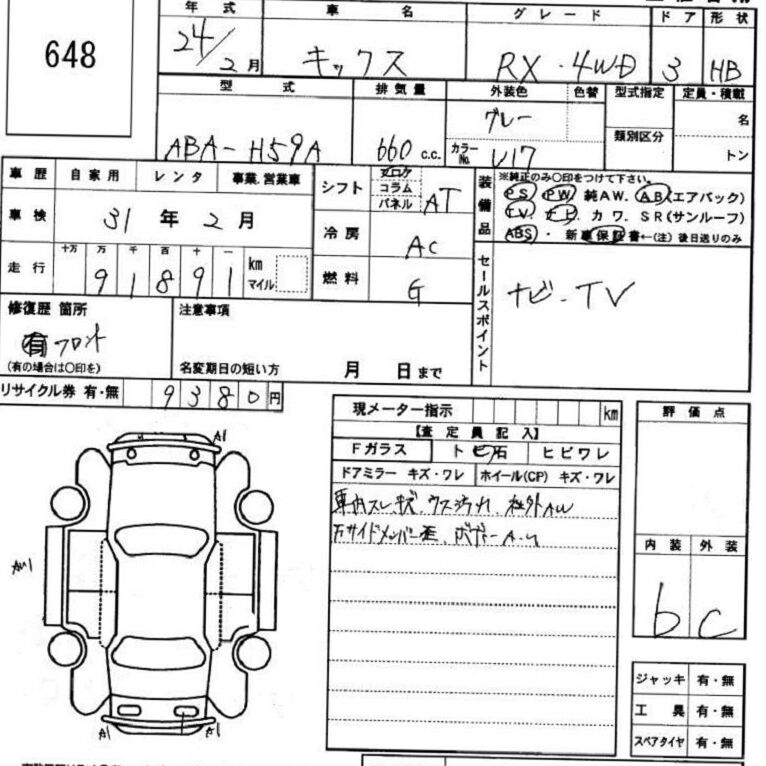 648
年式 車名 グレード ドア 形状
24/2月 キックス RX・4WD 3 HB
型式 排気量 外装色 色替 型式指定 定員・積載
ABA-H59A 660 c.c. グレー 名
カラーNo. U17 類別区分 トン
車歴 自家用 レンタ 事業.営業車
車検 31年2月
走行 十万 万 千 百 十 一
91891 km マイル
シフト フロア コラム パネル AT
冷房 AC
燃料 G
装備品 ※純正のみ〇印をつけて下さい。
PS PW 純AW. AB(エアバック)
TV ナビ カワ. SR(サンルーフ)
ABS・新車保証書←(注)後日送りのみ
セールスポイント ナビ・TV
修復歴 箇所
有 フロント
(有の場合は〇印を)
注意事項
名変期日の短い方 月 日まで
リサイクル券 有・無 9380円
現メーター指示 km
【査定員記入】
Fガラス トビ石 ヒビワレ
ドアミラー キズ・ワレ ホイール(CP) キズ・ワレ
車内スレ、キズ、ウス汚れ、社外AW
サイドメンバー歪、ボデーA・U
評価点
内装 外装
b C
ジャッキ 有・無
工具 有・無
スペアタイヤ 有・無
A1
AU1
A1 A1